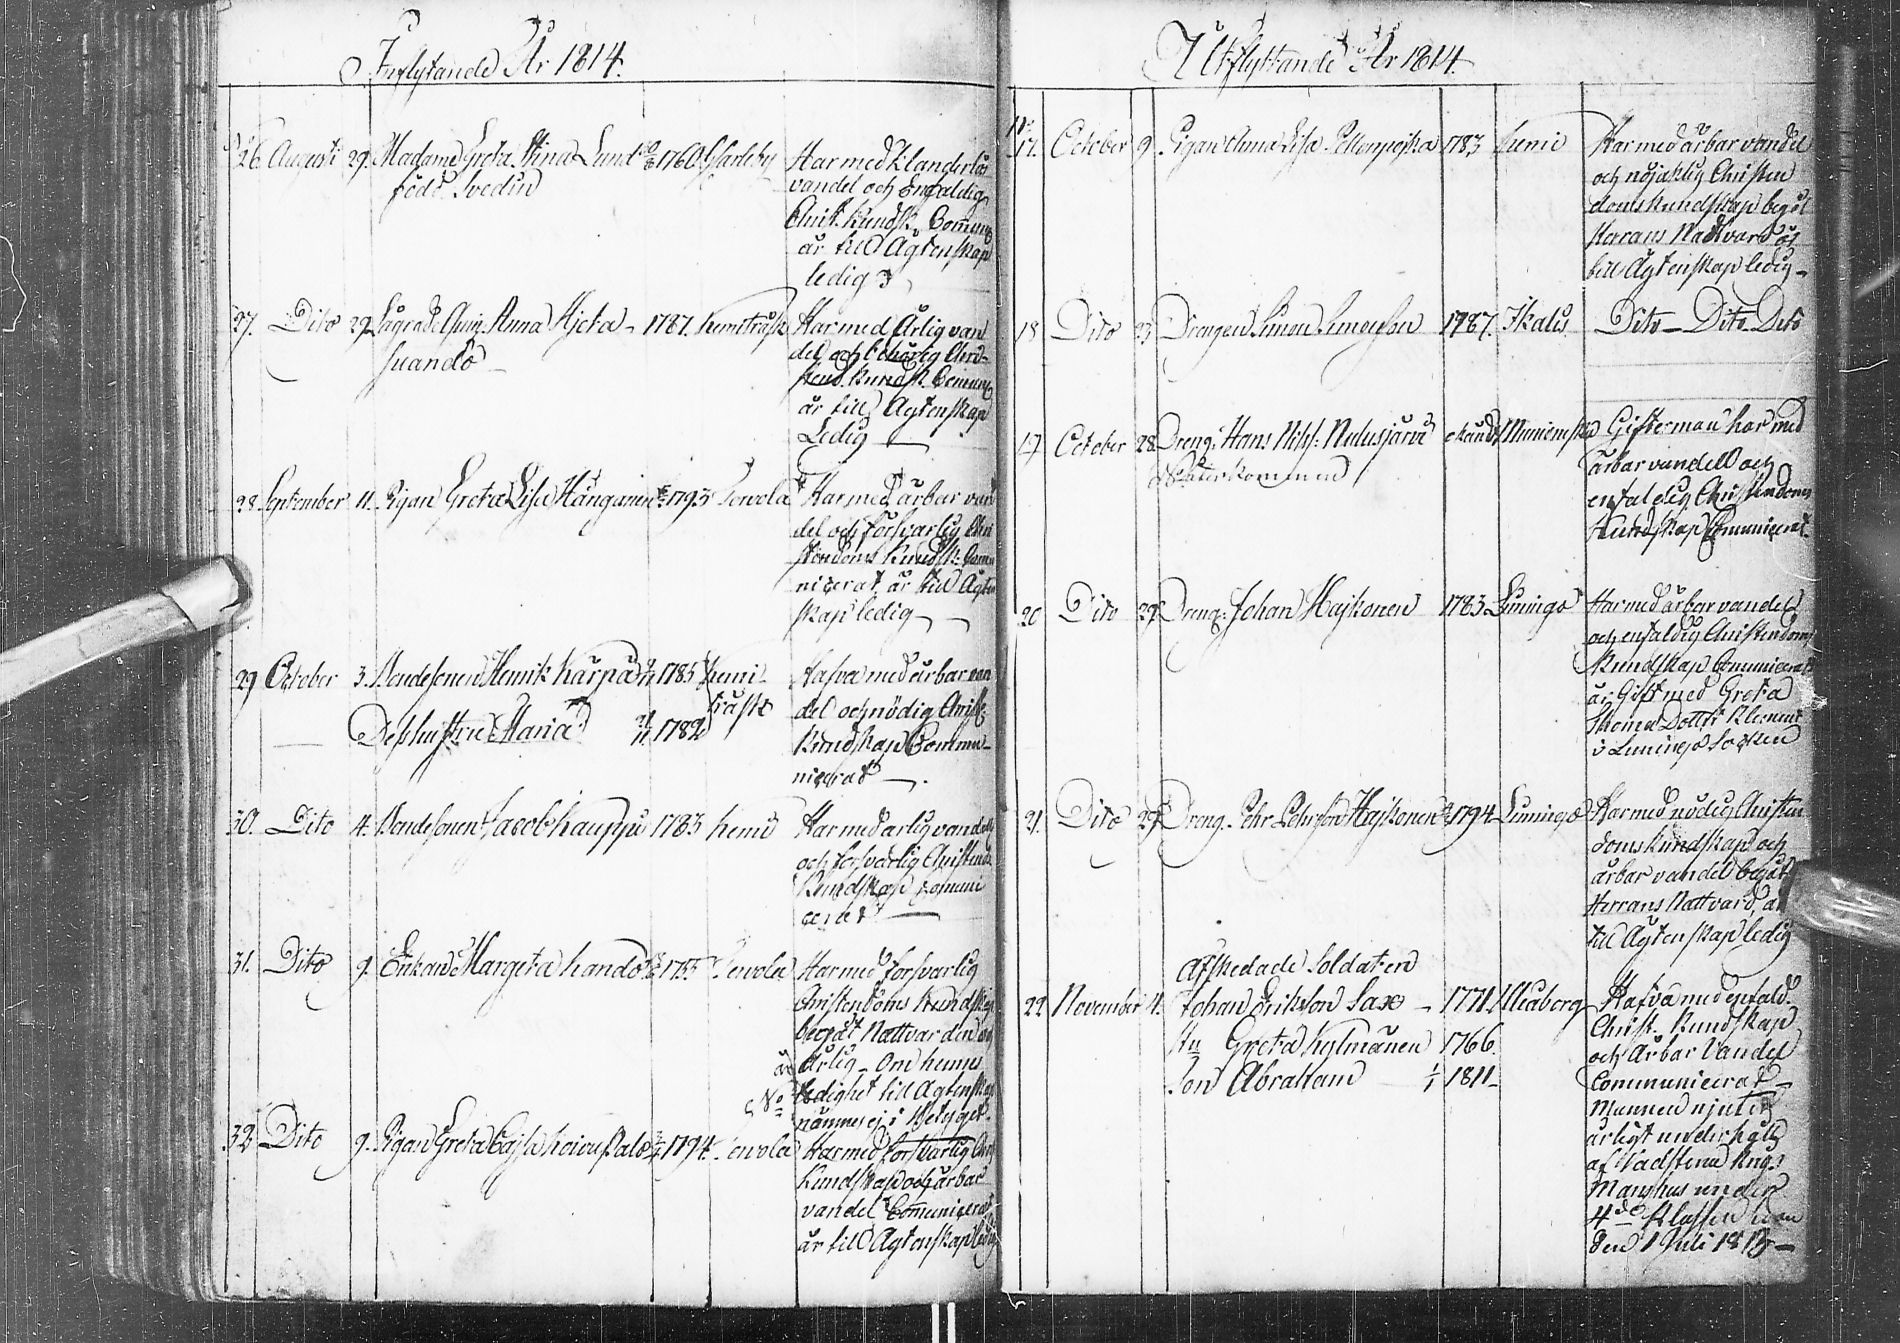 Inflytande År 1814.
26. Augusti 29. Madame Greta Stina Lund 1760. G:Carleby
född Svedin
Har med Klanderlös
vandel och Enfaldig
Christ. Kundsk. Commun.
är till Ägtenskap
ledig
27. Dito 29. Anna Ajeta 1787. Kemiträsk
Suando
Har med Ärlig van
del och Chri-
stend. Kundsk. Commun.
är till Ägtenskap
Ledig
28 September 11. Pigan Greta Lisa Hänganen 1793 Tervola
Har med ärbar van
del och försvarlig Chri
stendoms Kundsk. Commu
nicerat är till Ägten
skap ledig
29 October 3. Bondesonen Henrik Kärpä 1785 Kemi
träsk
Dess hustru Maria 1782
Hafva med ärbar van
del och nödig Christ.
Kundskap Commu-
nicerat
30. Dito 4. Bondesonen Jacob Kauppi 1783 Kemi
Har med ärlig vandel
och försvarlig Christend.
Kundskap Comuni
cerat
31. Dito 9. Enkan Margeta Kando Tervola
Har med försvarlig
Christendoms Kundskap
begått Nattvarden och
är Ärlig - Om hennes
ledighet till Ägtenskap
nämnes ej i Betyget.
32 Dito 9. Pigan Greta Cajsa Koivupalo 1794. Tervola
Har med försvarlig Chr.
Kundskap och ärbar
vandel Comunicerat
är till Ägtenskap ledig
Utflyttande År 1814.
17. October 9. Pigan Anna Lisa 1783 Kemi
Har med ärbar vandel
och nöjaktig Christen
doms kundskap begåt
Herrans Nattvard är
till Ägtenskap ledig
18 Dito 23 Drengen Simon Simonsson 1787. Ikalis
Dito - Dito - Dito
19 October 28. Dreng. Hans Nilss. Nulusjärvi okänd Muonioniska
Återkommen
Gifterman har med
ärbar vandel och
enfaldig Christendoms
Kundskap Communicerat.
20 Dito 29. Dreng. Johan Hajkonen 1783 Limingo
Har med ärbar vandel
och enfaldig Christendoms
Kundskap Comunicerat
är Gift med Greta
Thomæ Dotter Klement
i Limingo Socken
21. Dito 29. Dreng. Pehr Pehrsson Hajkonen 1794 Limingo
Har med nödig Christen
doms kundskap och
ärbar vandel begåt
Herrans Nattvard är
till Ägtenskap ledig
Afskedade Soldaten
22 November 4. Johan Eriksson Sax - 1771. Uleaborg
Hu Greta Kylmänen 1766.
Son Abraham 1/1 1811
Hafva med enfald.
Christ. Kundskap
och Ärbar Vandel
Communicerat -
Mannen njuter
årligt underhåll
af Vadstena Krigs
Manshus under
4de Klassen ifrån
den 1 Juli 1813